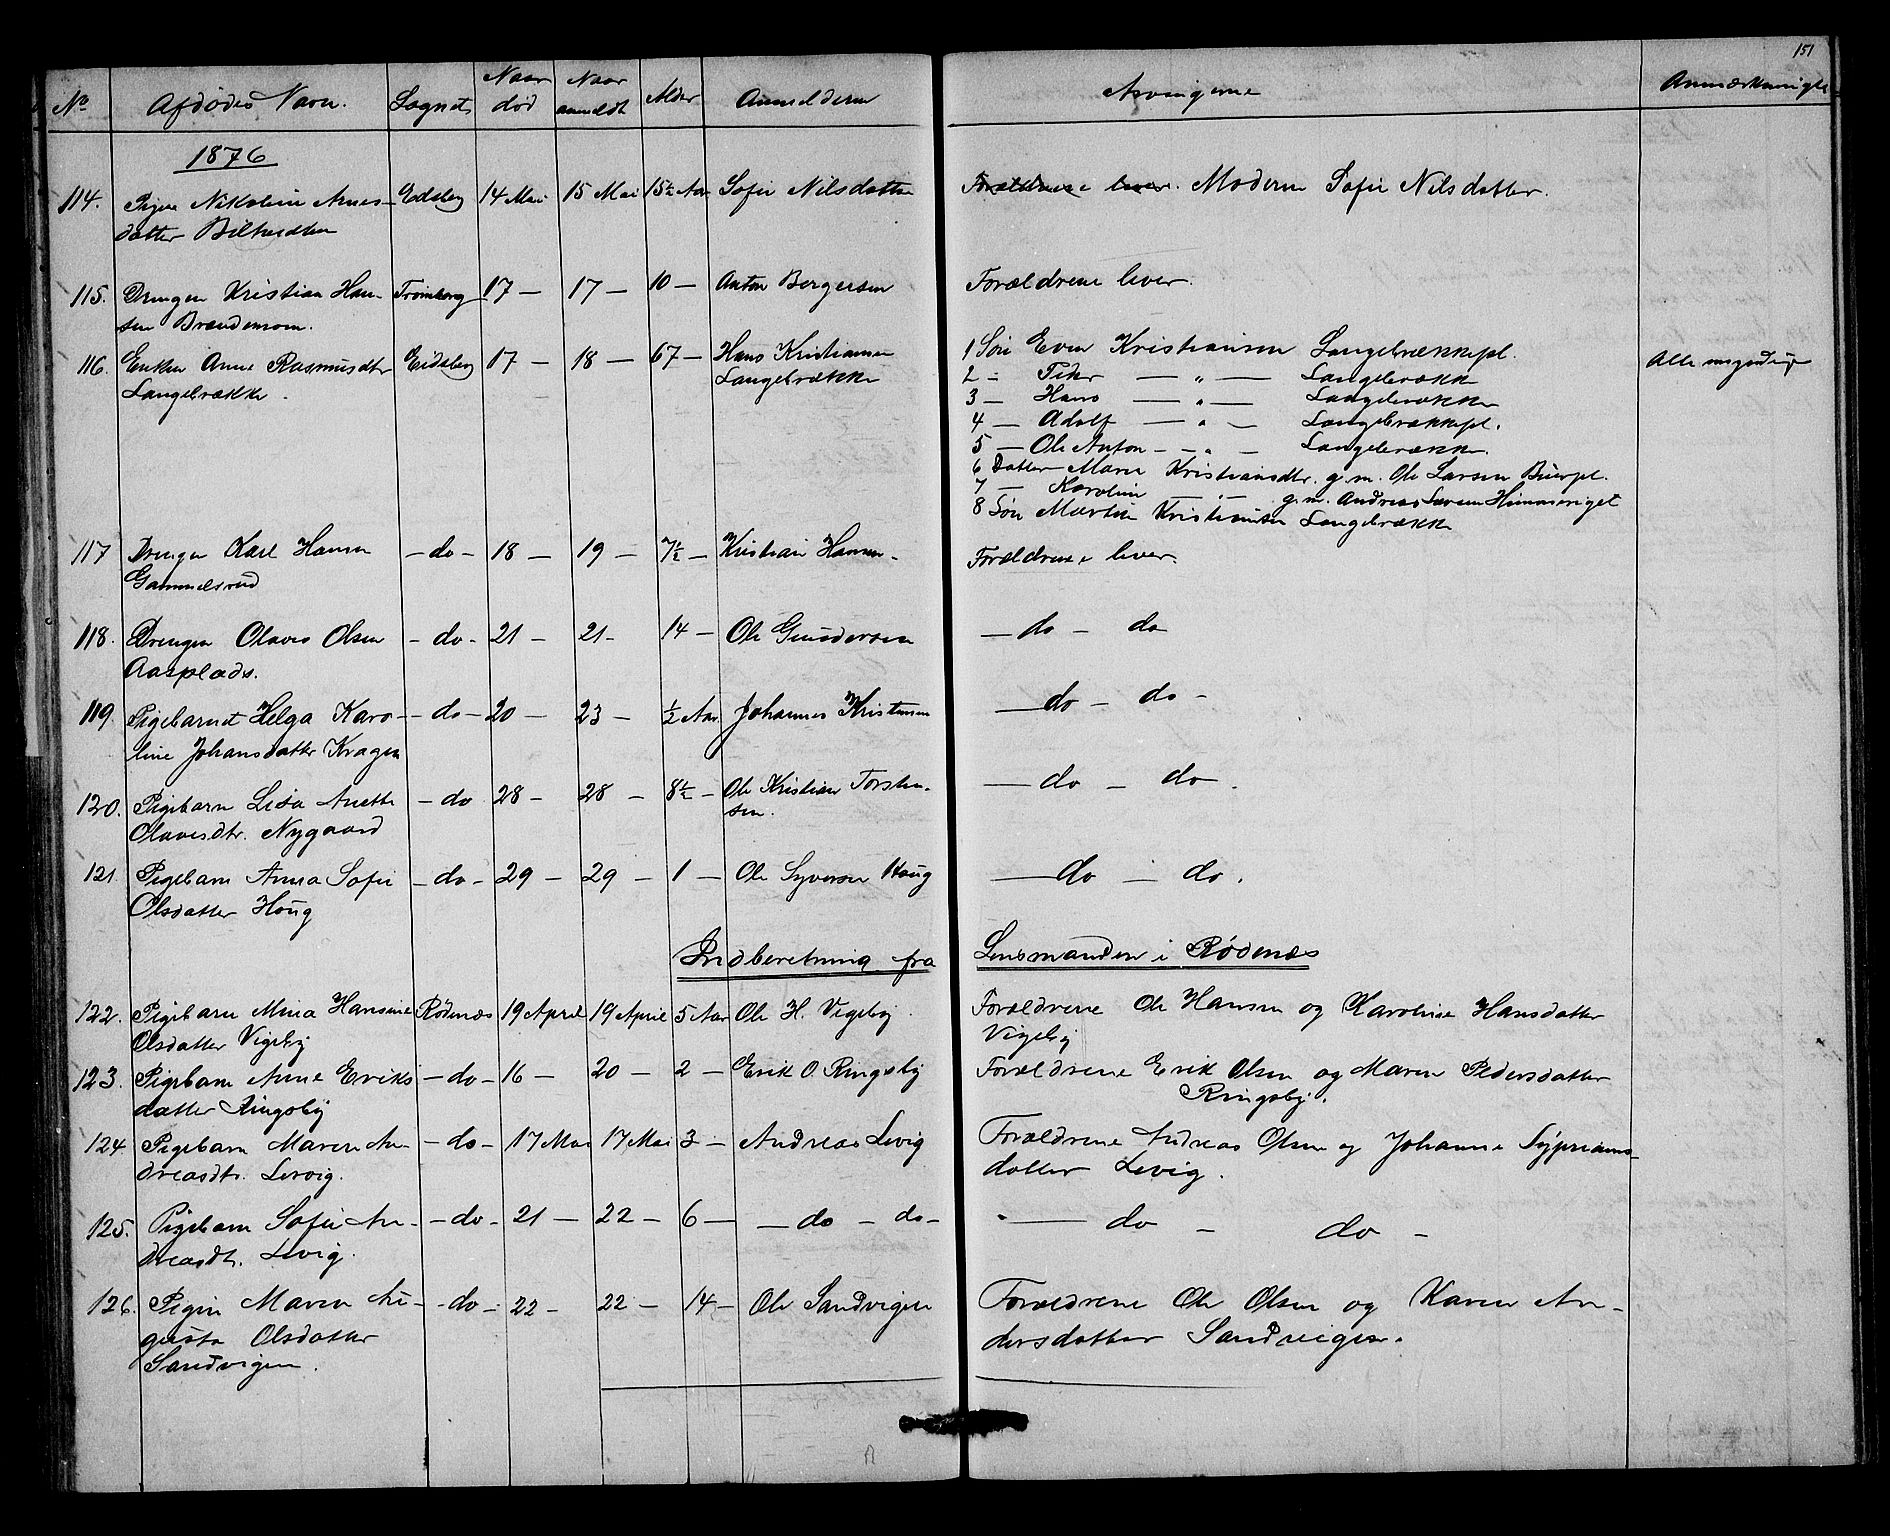 151
No Afdødes Navn. Sognet Naar død Naar anmeldt Alder Anmelderen Arvingerne Anmærkninger
1876
114. Pigen Nikoline Arnes- Edsberg 14 Mai 15 Mai 15½ Aar Sofie Nilsdatter Forældrene lever. Moderen Sofie Nilsdatter.
datter
115. Drengen Kristian Han- Trømborg 17 — 17 — 10 — Anton Borgersen Forældrene lever.
sen Brændemoen.
116. Enken Anne Rasmusdtr Eidsberg 17 — 18 — 67 — Hans Kristiansen 1 Søn Even Kristiansen Langebrækkepl. Alle myndige
Langebrække. Langebrække 2 — Peder — „ — Langebrække
3 — Hans — „ — Langebrække
4 — Adolf — „ — Langebrækkepl.
5 — Ole Anton — „ — Langebrække.
6 Datter Maren Kristiansdtr. g. m. Ole Larsen
7 — Karoline — „ — g. m. Andreas Larsen Himmeriget
8 Søn Martin Kristiansen Langebrække
117 Drengen Karl Hansen — do — 18 — 19 — 7½ — Kristian Hansen — Forældrene lever.
Gammelsrud
118. Drengen Olaves Olsen — do — 21 — 21 — 14 — Ole Gundersen — do — do
Aasplads.
119. Pigebarnet Helga Karo- — do — 20 — 23 — ½ Aar Johannes Kristensen — do — do —
line Johansdatter Kragen
120. Pigebarn Lisa Anette — do 28 — 28 — 8½ — Ole Kristian Torsten- — do — do.
Olavesdtr. Nygaard sen.
121. Pigebarn Anna Sofie — do — 29 — 29 — 1 — Ole Syversen Haug — do — do.
Olsdatter Houg
Indberetning fra Lensmanden i Rødenæs
122. Pigebarn Mina Hansine Rødenæs 19 April 19 April 5 Aar Ole H. Vigeby. Forældrene Ole Hansen og Karoline Hansdatter
Olsdatter Vigeby Vigeby
123. Pigebarn Anne Eriks — do — 16 — 20 — 2 — Erik O Ringsby Forældrene Erik Olsen og Maren Pedersdatter
datter Ringsby Ringsby.
124. Pigebarn Maren An- — do — 17 Mai 17 Mai 3 — Andreas Levig Forældrene Andreas Olsen og Johanne Syprians-
dreasdtr. Levig. datter Levig.
125. Pigebarn Sofie An- — do — 21 — 22 — 6 — — do — do — — do — do —
dreasdtr. Levig.
126. Pigen Maren Au- — do — 22 — 22 — 14 — Ole Sandvigen Forældrene Ole Olsen og Karen An-
gusta Olsdatter dersdatter Sandvigen.
Sandvigen.